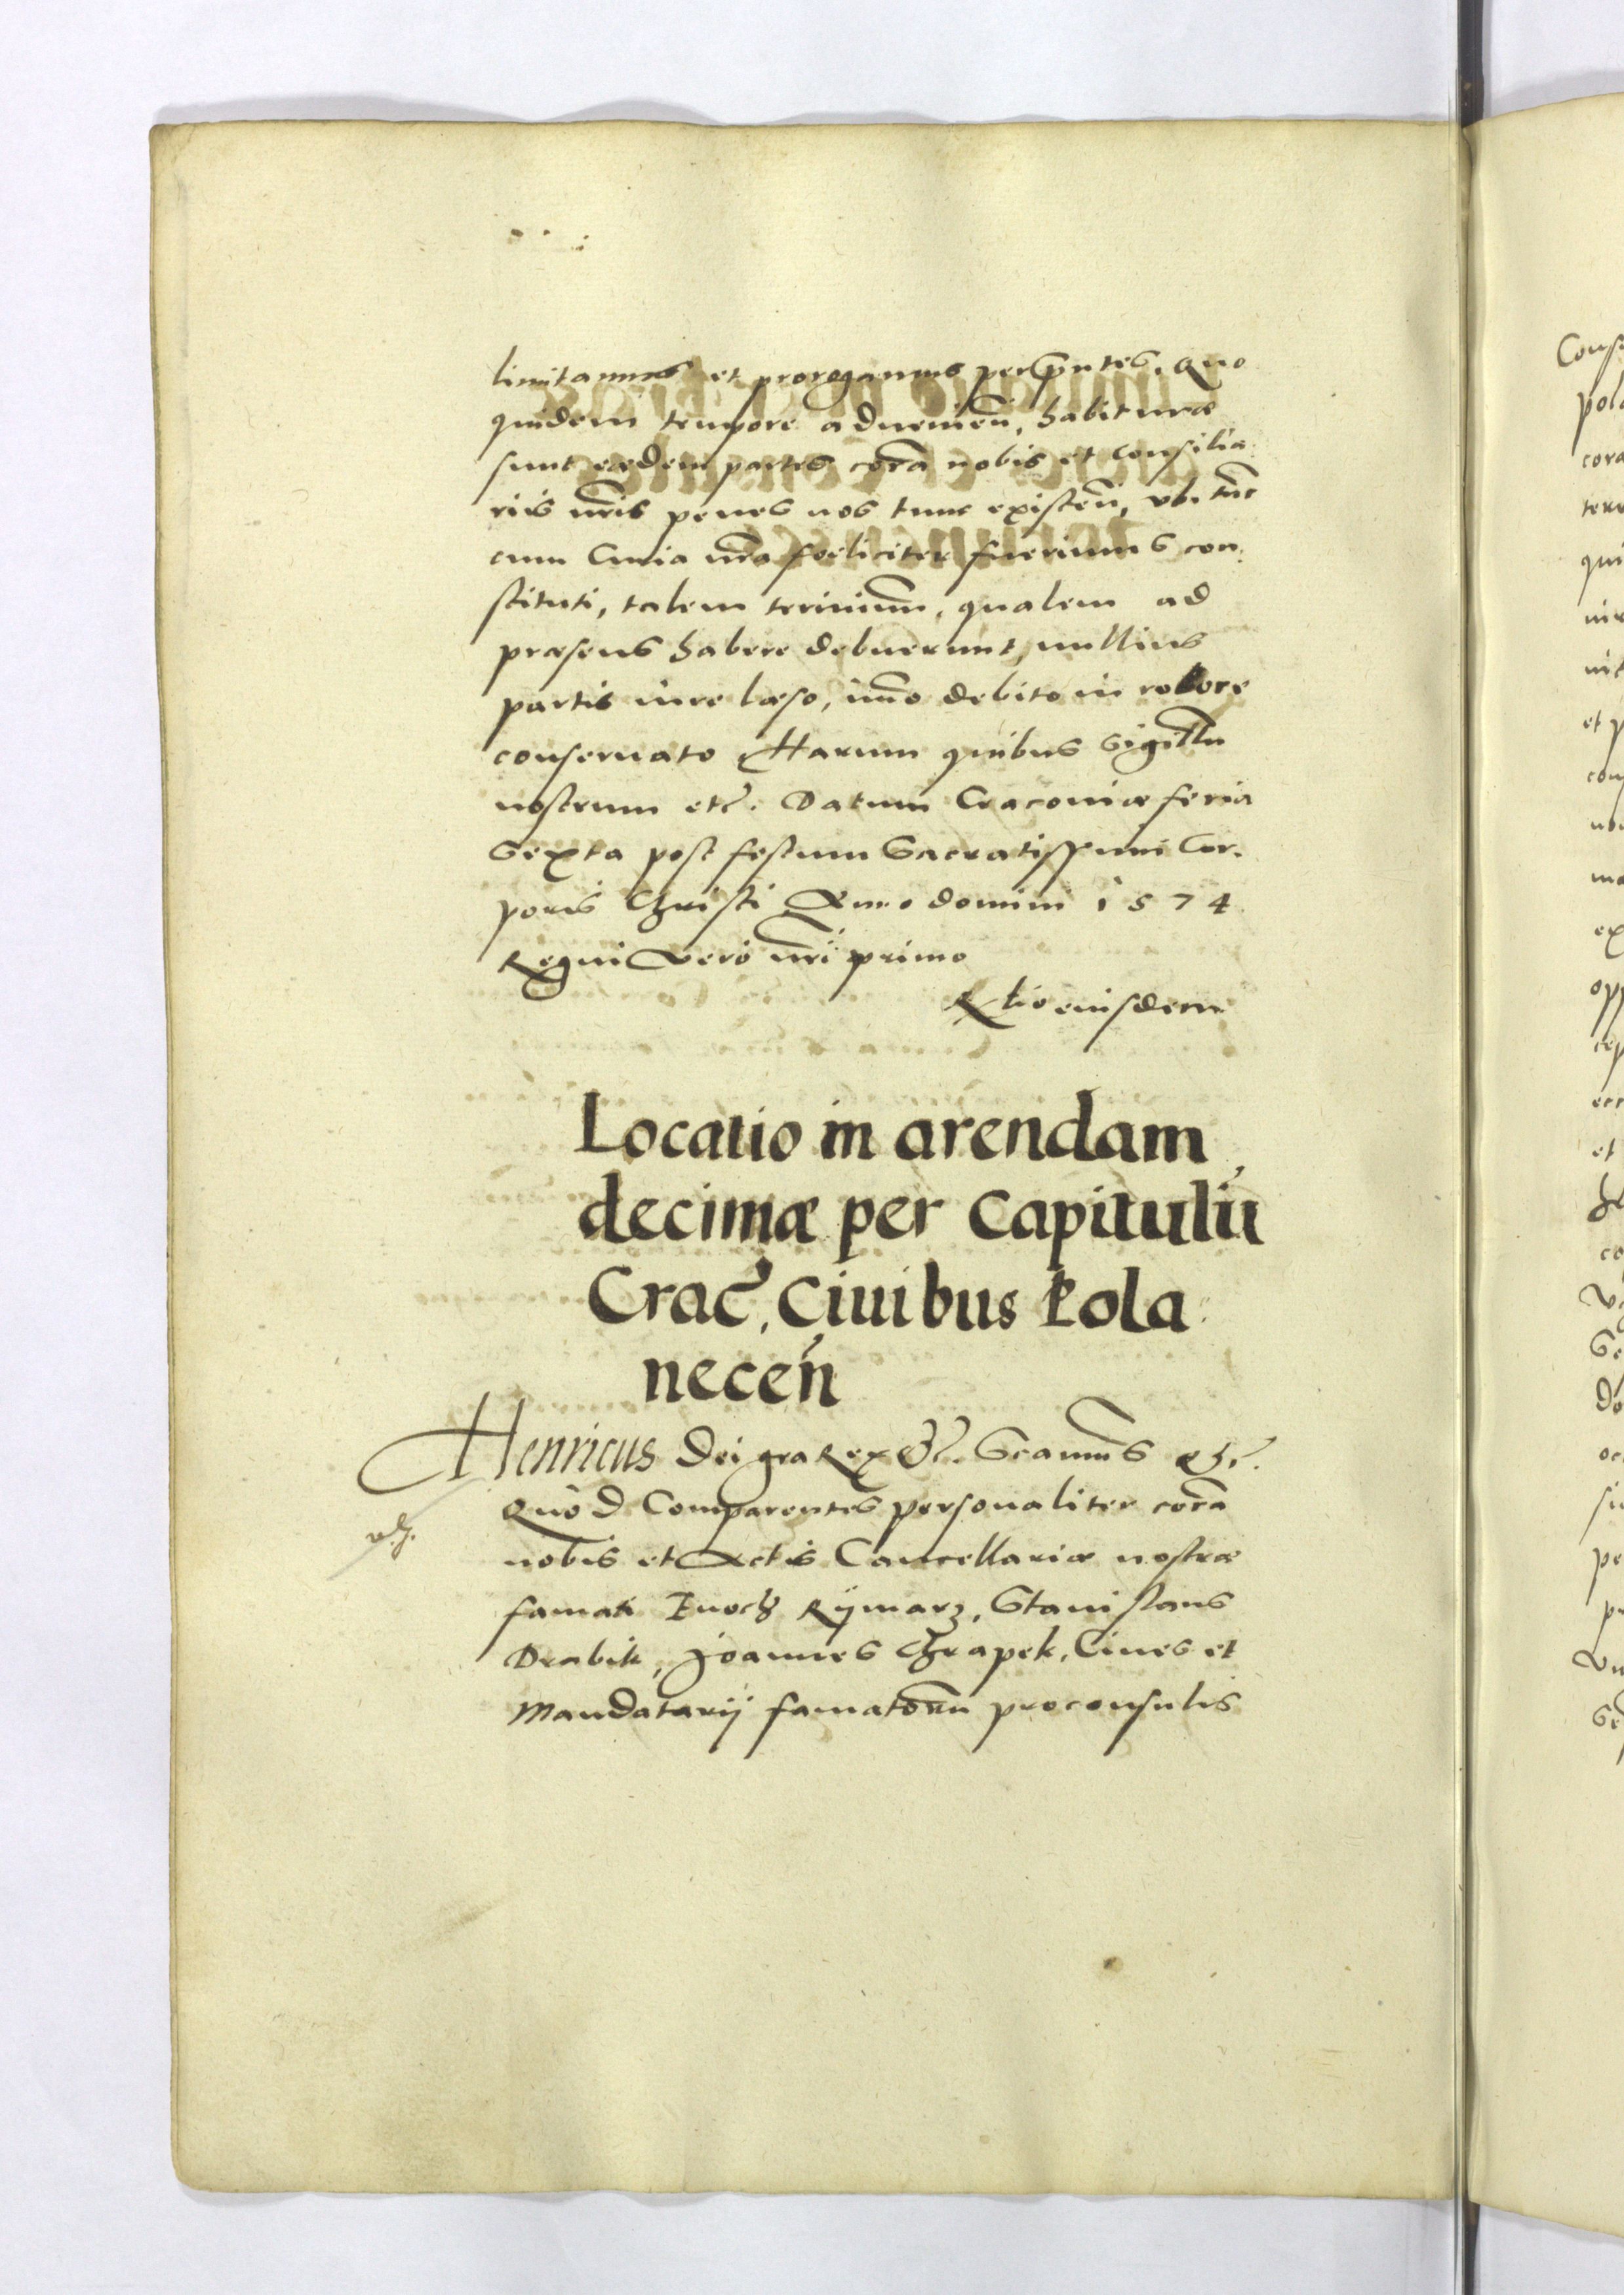 limitamus et prorogamus per p̃ntes, Quo
quidem tempore adueniẽn, habituræ
sunt eædem partes corã nobis et consilia
riis nr̃is penes nos tunc existẽn, vbi tũc
cum Curia nr̃a foeliciter fuerimus con
stituti, talem terminũm, qualem ad
præsens habere debuerunt, nullius
partis iure læso, im̃o debito in robore
conseruato Harum quibus sigillũ
nostrum etc̃. Datum Cracouiæ feria
Sexta post festum Sacratissimi Cor
poris Christi Anno domini 1574
Regni vero nr̃i primo
R̃lio eiusdem
Locatio in arendam
decimæ per Capitulũ
Crac̃, Ciuibus Pola
necẽn
Henricus Dei gra Rex &c̃. Scam̃us etc̃.
Quod Comparentes personaliter corã
nobis et Actis Cancellariæ nostræ
famati Enoch Rÿmarz, Stanislaus
Drabik, Joannes Chrapek, Ciues et
Mandatarij famatorũm proconsulis